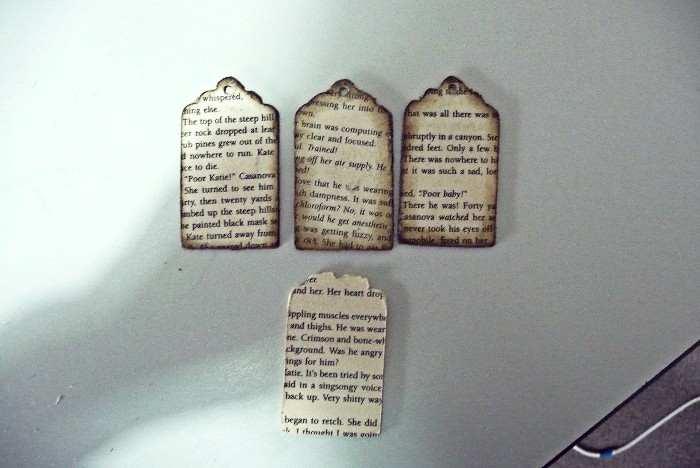 whispered.
hing else.
The top of the steep hill
er rock dropped at leas
ub pines grew out of the
d nowhere to run. Kate
ce to die.
"Poor Katie!" Casanova
She turned to see him
irty, then twenty yards
mbed up the steep hills
e painted black mask s
Kate turned away from
down
strong
essing her into
wn.
brain was computing e
y clear and focused.
al. Trained!
ng off her air supply. He
ed!
love that he was wearing
th dampness. It was suf
chloroform? No, it was o
would he get anesthetic
was getting fuzzy, and
out. She had to
ng
hat was all there was
abruptly in a canyon. See
dred feet. Only a few b
There was nowhere to hi
t it was such a sad, lon
ed. "Poor baby!"
There he was! Forty ya
asanova watched her a
never took his eyes off
mobile, fixed on her.
er.
and her. Her heart drop
ippling muscles everywh
and thighs. He was wear
ne. Crimson and bone-wh
ckground. Was he angry
ings for him?
atie. It's been tried by so
aid in a singsongy voice
back up. Very shitty way
began to retch. She did
k. I thought I was going